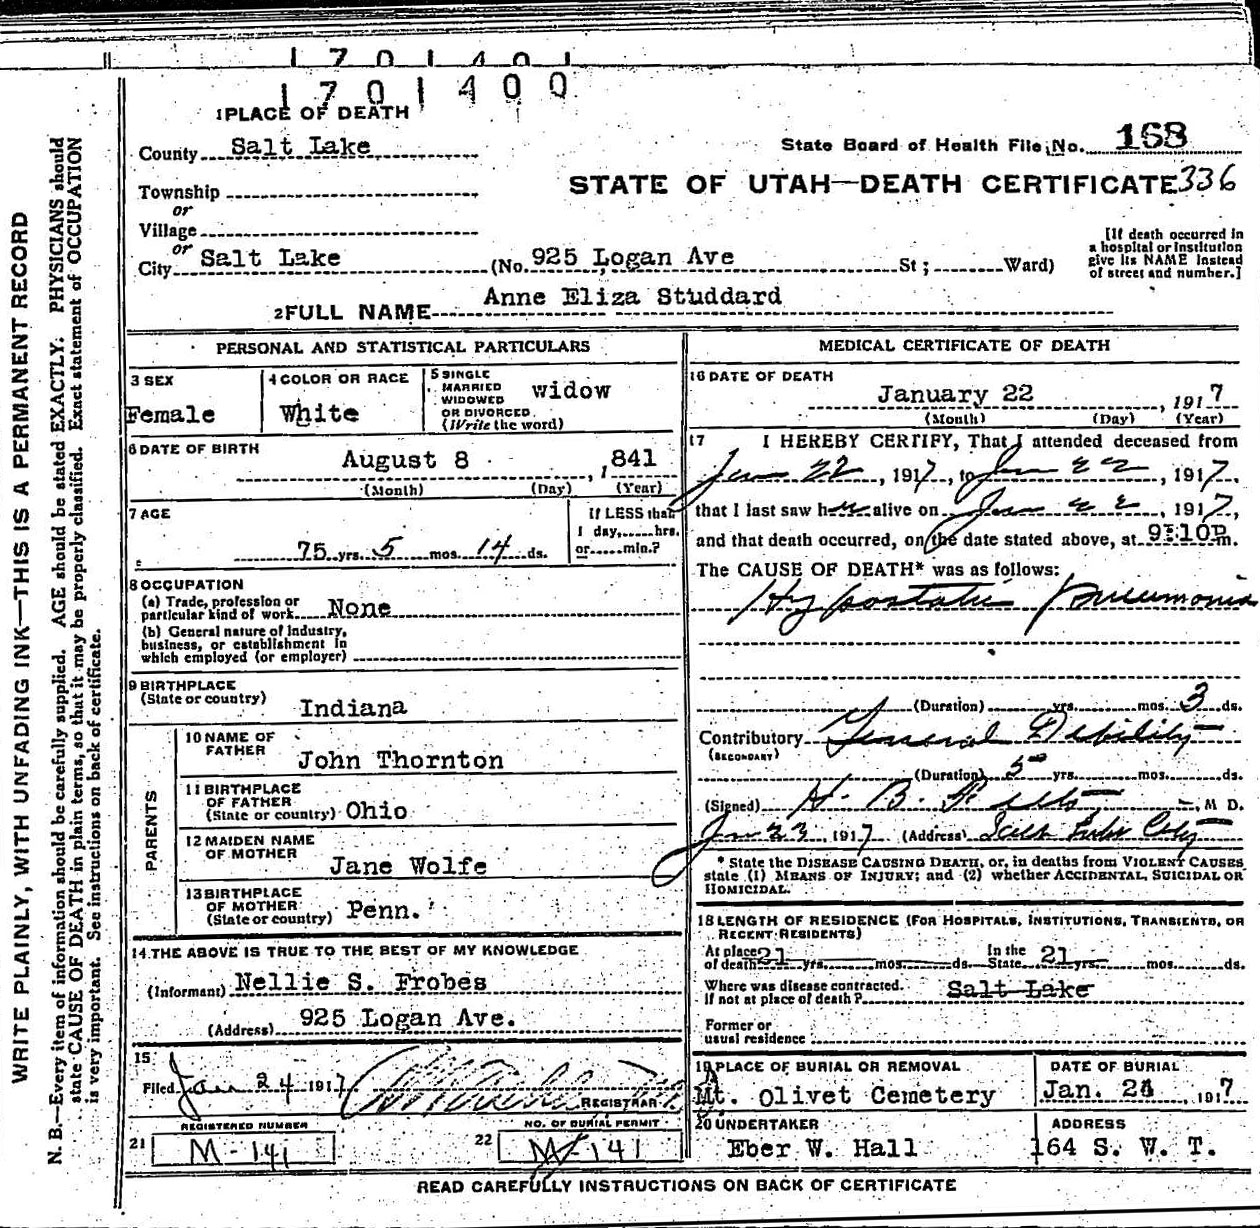 1701400
1701400
1 PLACE OF DEATH
County Salt Lake
State Board of Health File No. 168
Township
STATE OF UTAH—DEATH CERTIFICATE 336
or
Village
or
City Salt Lake (No. 925 Logan Ave St; Ward)
[If death occurred in
a hospital or institution
give its NAME instead
of street and number.]
2 FULL NAME Anne Eliza Studdard
PERSONAL AND STATISTICAL PARTICULARS
3 SEX
Female
4 COLOR OR RACE
White
5 SINGLE
MARRIED
WIDOWED
OR DIVORCED
(Write the word)
widow
6 DATE OF BIRTH
August 8 , 1841
(Month) (Day) (Year)
7 AGE
75 yrs. 5 mos. 14 ds.
If LESS than
1 day, hrs.
or min.?
8 OCCUPATION
(a) Trade, profession or
particular kind of work None
(b) General nature of industry,
business, or establishment in
which employed (or employer)
9 BIRTHPLACE
(State or country) Indiana
PARENTS
10 NAME OF
FATHER John Thornton
11 BIRTHPLACE
OF FATHER
(State or country) Ohio
12 MAIDEN NAME
OF MOTHER Jane Wolfe
13 BIRTHPLACE
OF MOTHER
(State or country) Penn.
14 THE ABOVE IS TRUE TO THE BEST OF MY KNOWLEDGE
(Informant) Nellie S. Frobes
(Address) 925 Logan Ave.
15
Filed Jan 24 1917
REGISTRAR
REGISTERED NUMBER
21 M-141
NO. OF BURIAL PERMIT
22 M-141
MEDICAL CERTIFICATE OF DEATH
16 DATE OF DEATH
January 22 , 1917
(Month) (Day) (Year)
17 I HEREBY CERTIFY, That I attended deceased from
Jan 22, 1917, to Jan 22, 1917,
that I last saw her alive on Jan 22, 1917,
and that death occurred, on the date stated above, at 9:10P m.
The CAUSE OF DEATH* was as follows:
Hypostatic Pneumonia
(Duration) yrs. mos. 3 ds.
Contributory General Debility
(SECONDARY)
(Duration) 5 yrs. mos. ds.
(Signed) H. B. , M D.
Jan 23, 1917 (Address) Salt Lake City
* State the DISEASE CAUSING DEATH, or, in deaths from VIOLENT CAUSES
state (1) MEANS OF INJURY; and (2) whether ACCIDENTAL, SUICIDAL OR
HOMICIDAL.
18 LENGTH OF RESIDENCE (FOR HOSPITALS, INSTITUTIONS, TRANSIENTS, OR
RECENT RESIDENTS)
At place
of death 21 yrs. mos. ds.
In the
State 21 yrs. mos. ds.
Where was disease contracted.
If not at place of death? Salt Lake
Former or
usual residence
19 PLACE OF BURIAL OR REMOVAL
Mt. Olivet Cemetery
DATE OF BURIAL
Jan. 24 , 1917
20 UNDERTAKER
Eber W. Hall
ADDRESS
164 S. W. T.
READ CAREFULLY INSTRUCTIONS ON BACK OF CERTIFICATE
WRITE PLAINLY, WITH UNFADING INK—THIS IS A PERMANENT RECORD
N. B.—Every item of information should be carefully supplied. AGE should be stated EXACTLY. PHYSICIANS should
state CAUSE OF DEATH in plain terms, so that it may be properly classified. Exact statement of OCCUPATION
is very important. See instructions on back of certificate.